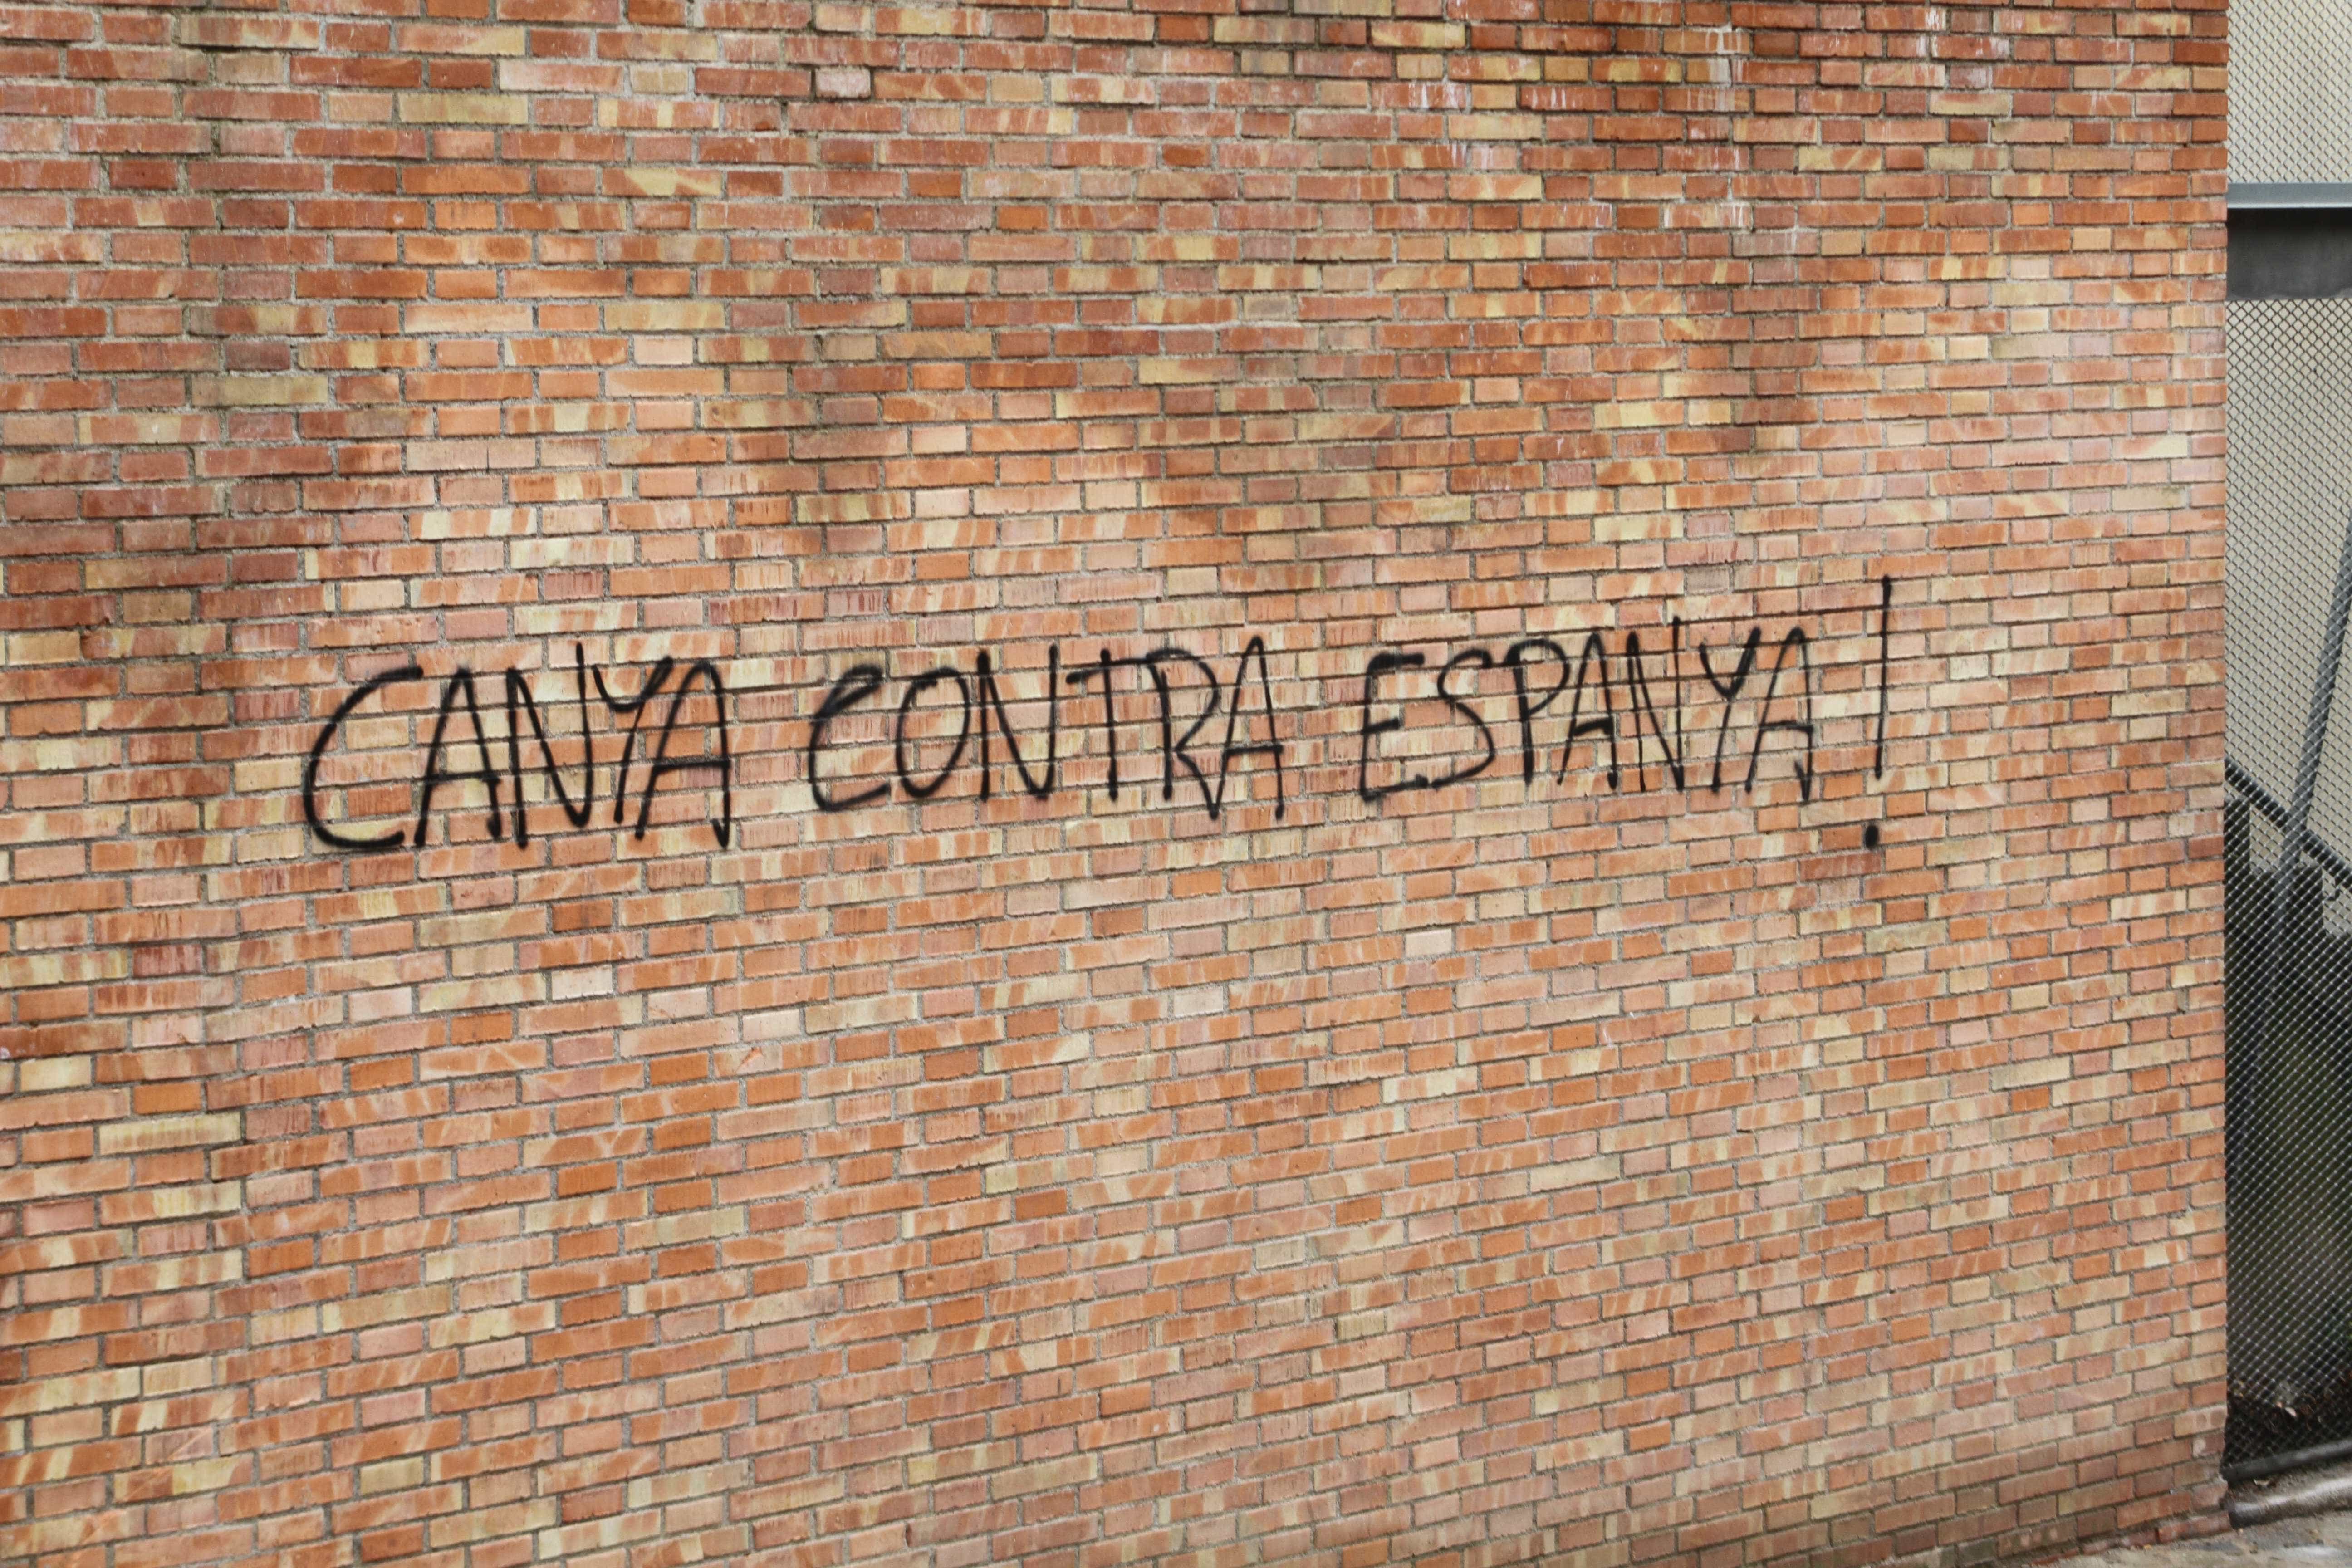 CANYA CONTRA ESPANYA!